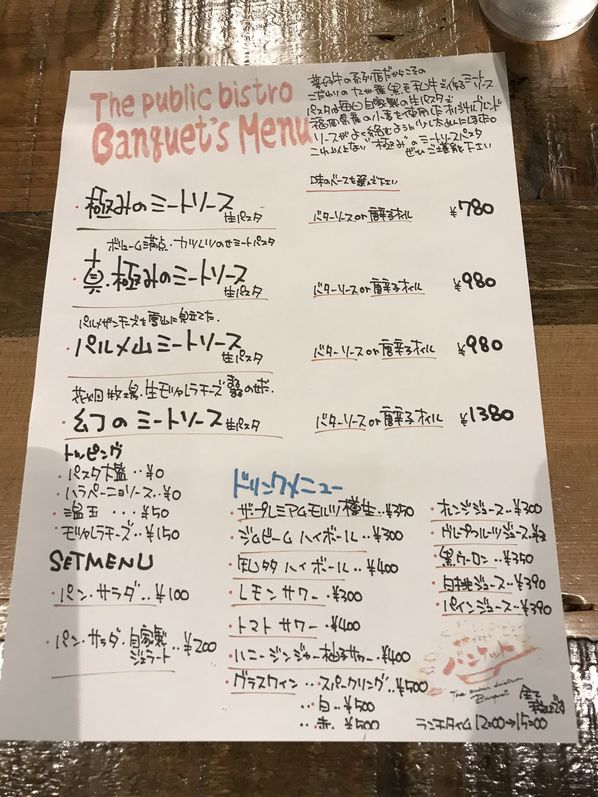 The public bistro
Banquet's Menu
こだわりの九州産黒毛和牛で作るミートソース
パスタは毎日自家製の生パスタで
ソースがよく絡むように
これ以上ない"極み"のミートソースパスタ
ぜひご堪能下さい
味のベースを選んで下さい
・極みのミートソース 生パスタ バターソース or 唐辛子オイル ¥780
ボリューム満点・カツレツのせミートパスタ
・真・極みのミートソース 生パスタ バターソース or 唐辛子オイル ¥980
パルメザンチーズを雪山に見立てた。
・パルメ山ミートソース 生パスタ バターソース or 唐辛子オイル ¥980
花畑牧場・生モッツァレラチーズのせ。
・幻のミートソース 生パスタ バターソース or 唐辛子オイル ¥1380
トッピング
・パスタ大盛・・¥0
・ハラペーニョソース・・¥0
・温玉・・・¥50
・モッツァレラチーズ・・¥150
SETMENU
・パン・サラダ・・¥100
・パン・サラダ・自家製ジェラート・・¥200
ドリンクメニュー
・ザ・プレミアムモルツ 樽生・・¥350
・ジムビーム ハイボール・・¥300
・知多 ハイボール・・¥400
・レモンサワー・・¥300
・トマトサワー・・¥400
・ハニージンジャー柚子サワー・・¥400
・グラスワイン・・スパークリング・・¥500
・・白・・¥500
・・赤・・¥500
・オレンジジュース・・¥300
・グレープフルーツジュース・・
・黒ウーロン・・¥350
・白桃ジュース・・¥390
・パインジュース・・¥390
バンケット
The public bistro
Banquet
全て税込です
ランチタイム 12:00→15:00